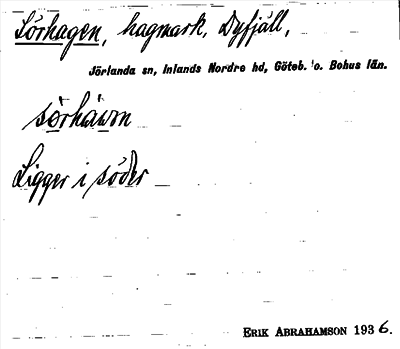 Sörhagen, hagmark, Dyfjäll,
Jörlanda sn, Inlands Nordre hd, Göteb. o. Bohus län.
sörhäwn
Ligger i söder
ERIK ABRAHAMSON 1936.